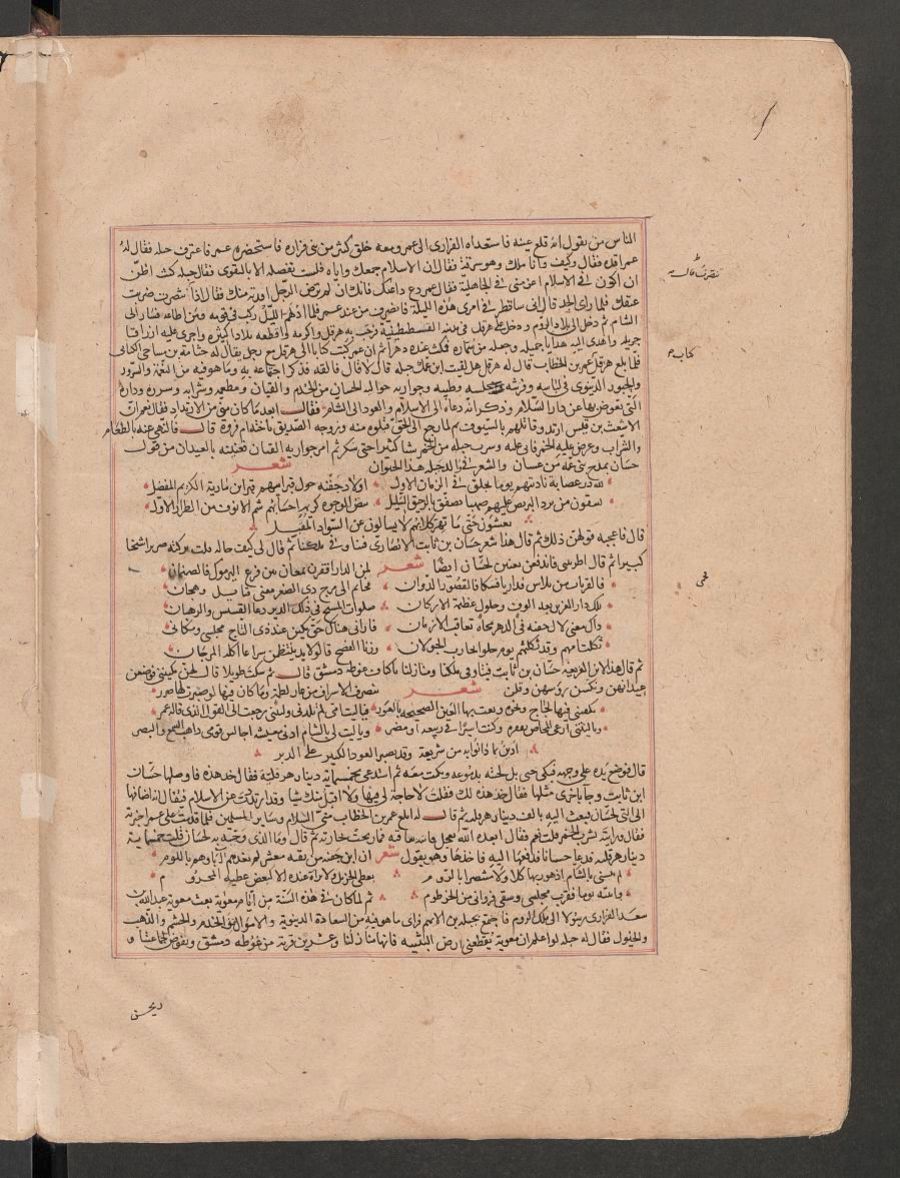 الناس من يقول انه قلع عينه فاستعداه الفزارى الى عمر ومعه خلق كثير من بنى فزاره فاستحضره عمر فاعترف جبله فقال له
عمر اقده فقال وكيف وانا ملك وهو سوقة فقال ان الاسلام جمعك واياه فلست تفضله الا بالتقوى فقال جبله كنت اظن
ان اكون فى الاسلام اعز منى فى الجاهلية فقال عمر دع ذا عنك فانك ان لم ترض الرجل اقدته منك فقال اذا اتنصر قال ان تنصرت ضربت
عنقك فلما راى الجد قال انى سانظر فى امرى هذه الليلة فانصرف من عند عمر فلما ادلهم الليل ركب فى قومه ومن اطاعه فسار الى
الشام ثم دخل الى بلاد الروم ودخل على هرقل فى مدينة القسطنطينية فرحب به هرقل واكرمه واقطعه بلادا كثيرة واجرى عليه ارزاقا
جزيله واهدى اليه هدايا جميله وجعله من سماره فمكث عنده دهرا ثم ان عمر كتب كتابا الى هرقل مع رجل يقال له جثامة بن مساحق الكنانى
فلما بلغ هرقل كتاب عمر بن الخطاب قال له هرقل هل لقيت ابن عمك جبله قال لا قال فالقه فذكر اجتماعه به وما هو فيه من النعمة والسرور
والحبور الدنيوى فى لباسه وفرشه ومجلسه وطيبه وجواريه حواليه الحسان من الخدم والقيان ومطعمه وشرابه وسرره وداره
التى تعوض بها عن دار السلام وذكر انه دعاه الى الاسلام والعود الى الشام فقال ابعد ما كان منى من الارتداد فقال نعم ان
الاشعث بن قيس ارتد وقاتلهم بالسيوف ثم لما رجع الى الحق قبلوه منه وزوجه الصديق باخته ام فروة قال فالتهى عنه بالطعام
والشراب وعرض عليه الخمر فابى عليه وشرب جبله من الخمر شيا كثيرا حتى سكر ثم امر جواريه القيان فغنينه بالعيدان من قول
حسان يمدح بنى عمه من غسان والشعر فى والد جبله هذا الحيوان شعر
لله در عصابة نادمتهم يوما بجلق فى الزمان الاول اولاد جفنه حول قبر ابيهم قبر ابن مارية الكريم المفضل
يسقون من ورد البريص عليهم صهبا تصفق بالرحيق السلسل بيض الوجوه كريمة احسابهم شم الانوف من الطراز الاول
يغشون حتى ما تهر كلابهم لا يسالون عن السواد المقبل
قال فاعجبه قولهن ذلك ثم قال هذا شعر حسان بن ثابت الانصارى فينا وفى ملكنا ثم قال لى كيف حاله قلت تركته ضريرا شيخا
كبيرا ثم قال اطربننى فاندفعن يغنين لحسان ايضا شعر لمن الدار اقفرت بمعان بين فرع اليرموك فالصمان
فالقريات من بلاس فداريا فسكاء فالقصور الدوان محاسم الى مرج ذى الصفر مغنى قنابل وهجان
تلك دار العزيز بعد الوف وحلول عظيمة الاركان صلوات المسيح فى ذلك الدير دعا القسيس والرهبان
ذاك مغنى لال جفنه فى الدهر محاه تعاقب الازمان فارانى هناك حق مكين عند ذى التاج مجلسى ومكانى
ثكلت امهم وقد ثكلتهم يوم حلوا بحارث الجولان ودنا الفصح فالولايد ينظمن سراعا اكلة المرجان
ثم قال هذا لابن الفريعة حسان بن ثابت فينا وفى ملكنا ومنازلنا باكناف غوطة دمشق قال ثم سكت طويلا قال لهن بكيننى فوضعن
عيدانهن ونكسن روسهن وقلن شعر تنصرت الاشراف من عار لطمة وما كان فيها لو صبرت لها ضرر
تكنفنى فيها لجاج ونخوة وبعت بها العين الصحيحة بالعور فيا ليت امى لم تلدنى وليتنى رجعت الى القول الذى قاله عمر
ويا ليتنى ارعى المخاض بقفرة وكنت اسيرا فى ربيعة او مضر ويا ليت لى بالشام ادنى معيشة اجالس قومى ذاهب السمع والبصر
ادين بما دانوا به من شريعة وقد يصبر العود الكبير على الدبر
قال فوضع يده على وجهه فبكى حتى بل لحيته بدموعه وبكيت معه ثم استدعى بخمسماية دينار هرقلية فقال خذ هذه فاوصلها حسان
ابن ثابت وجا باخرى مثلها فقال خذ هذه لك فقلت لا حاجة لى فيها ولا اقبل منك شيا وقد ارتددت عن الاسلام فيقال انه اضافها
الى التى لحسان فبعث اليه بالف دينار هرقلية ثم قال له ابلغ عمر بن الخطاب منى السلام وساير المسلمين فلما قدمت على عمر اخبرته
فقال ورايته يشرب الخمر قلت نعم فقال ابعده الله تعجل فانيه بباقيه فما ربحت تجارته ثم قال وما الذى وجه به لحسان قلت خمسماية
دينار هرقلية فدعا حسانا فدفعها اليه فاخذها وهو يقول شعر ان ابن جفنه من بقية معشر لم يغذهم اباوهم باللوم
لم ينسنى بالشام اذ هو ربها كلا ولا متنصرا بالروم يعطى الجزيل ولا يراه عنده الا كبعض عطية المحروم
واتيته يوما فقرب مجلسى وسقى فروانى من الخرطوم ثم لما كان فى هذه السنة من ايام معوية بعث معوية عبدالله بن
سعد الفزارى رسولا الى ملك الروم فاجتمع بجبله بن الايهم فراى ما هو فيه من السعادة الدنيوية والاموال من الخدم والحشم والذهب
والخيول فقال له جبله لو اعلم ان معوية يقطعنى ارض البثنية فانها منازلنا وعشرين قرية من غوطة دمشق ويفرض لجماعتنا و
كتاب صح